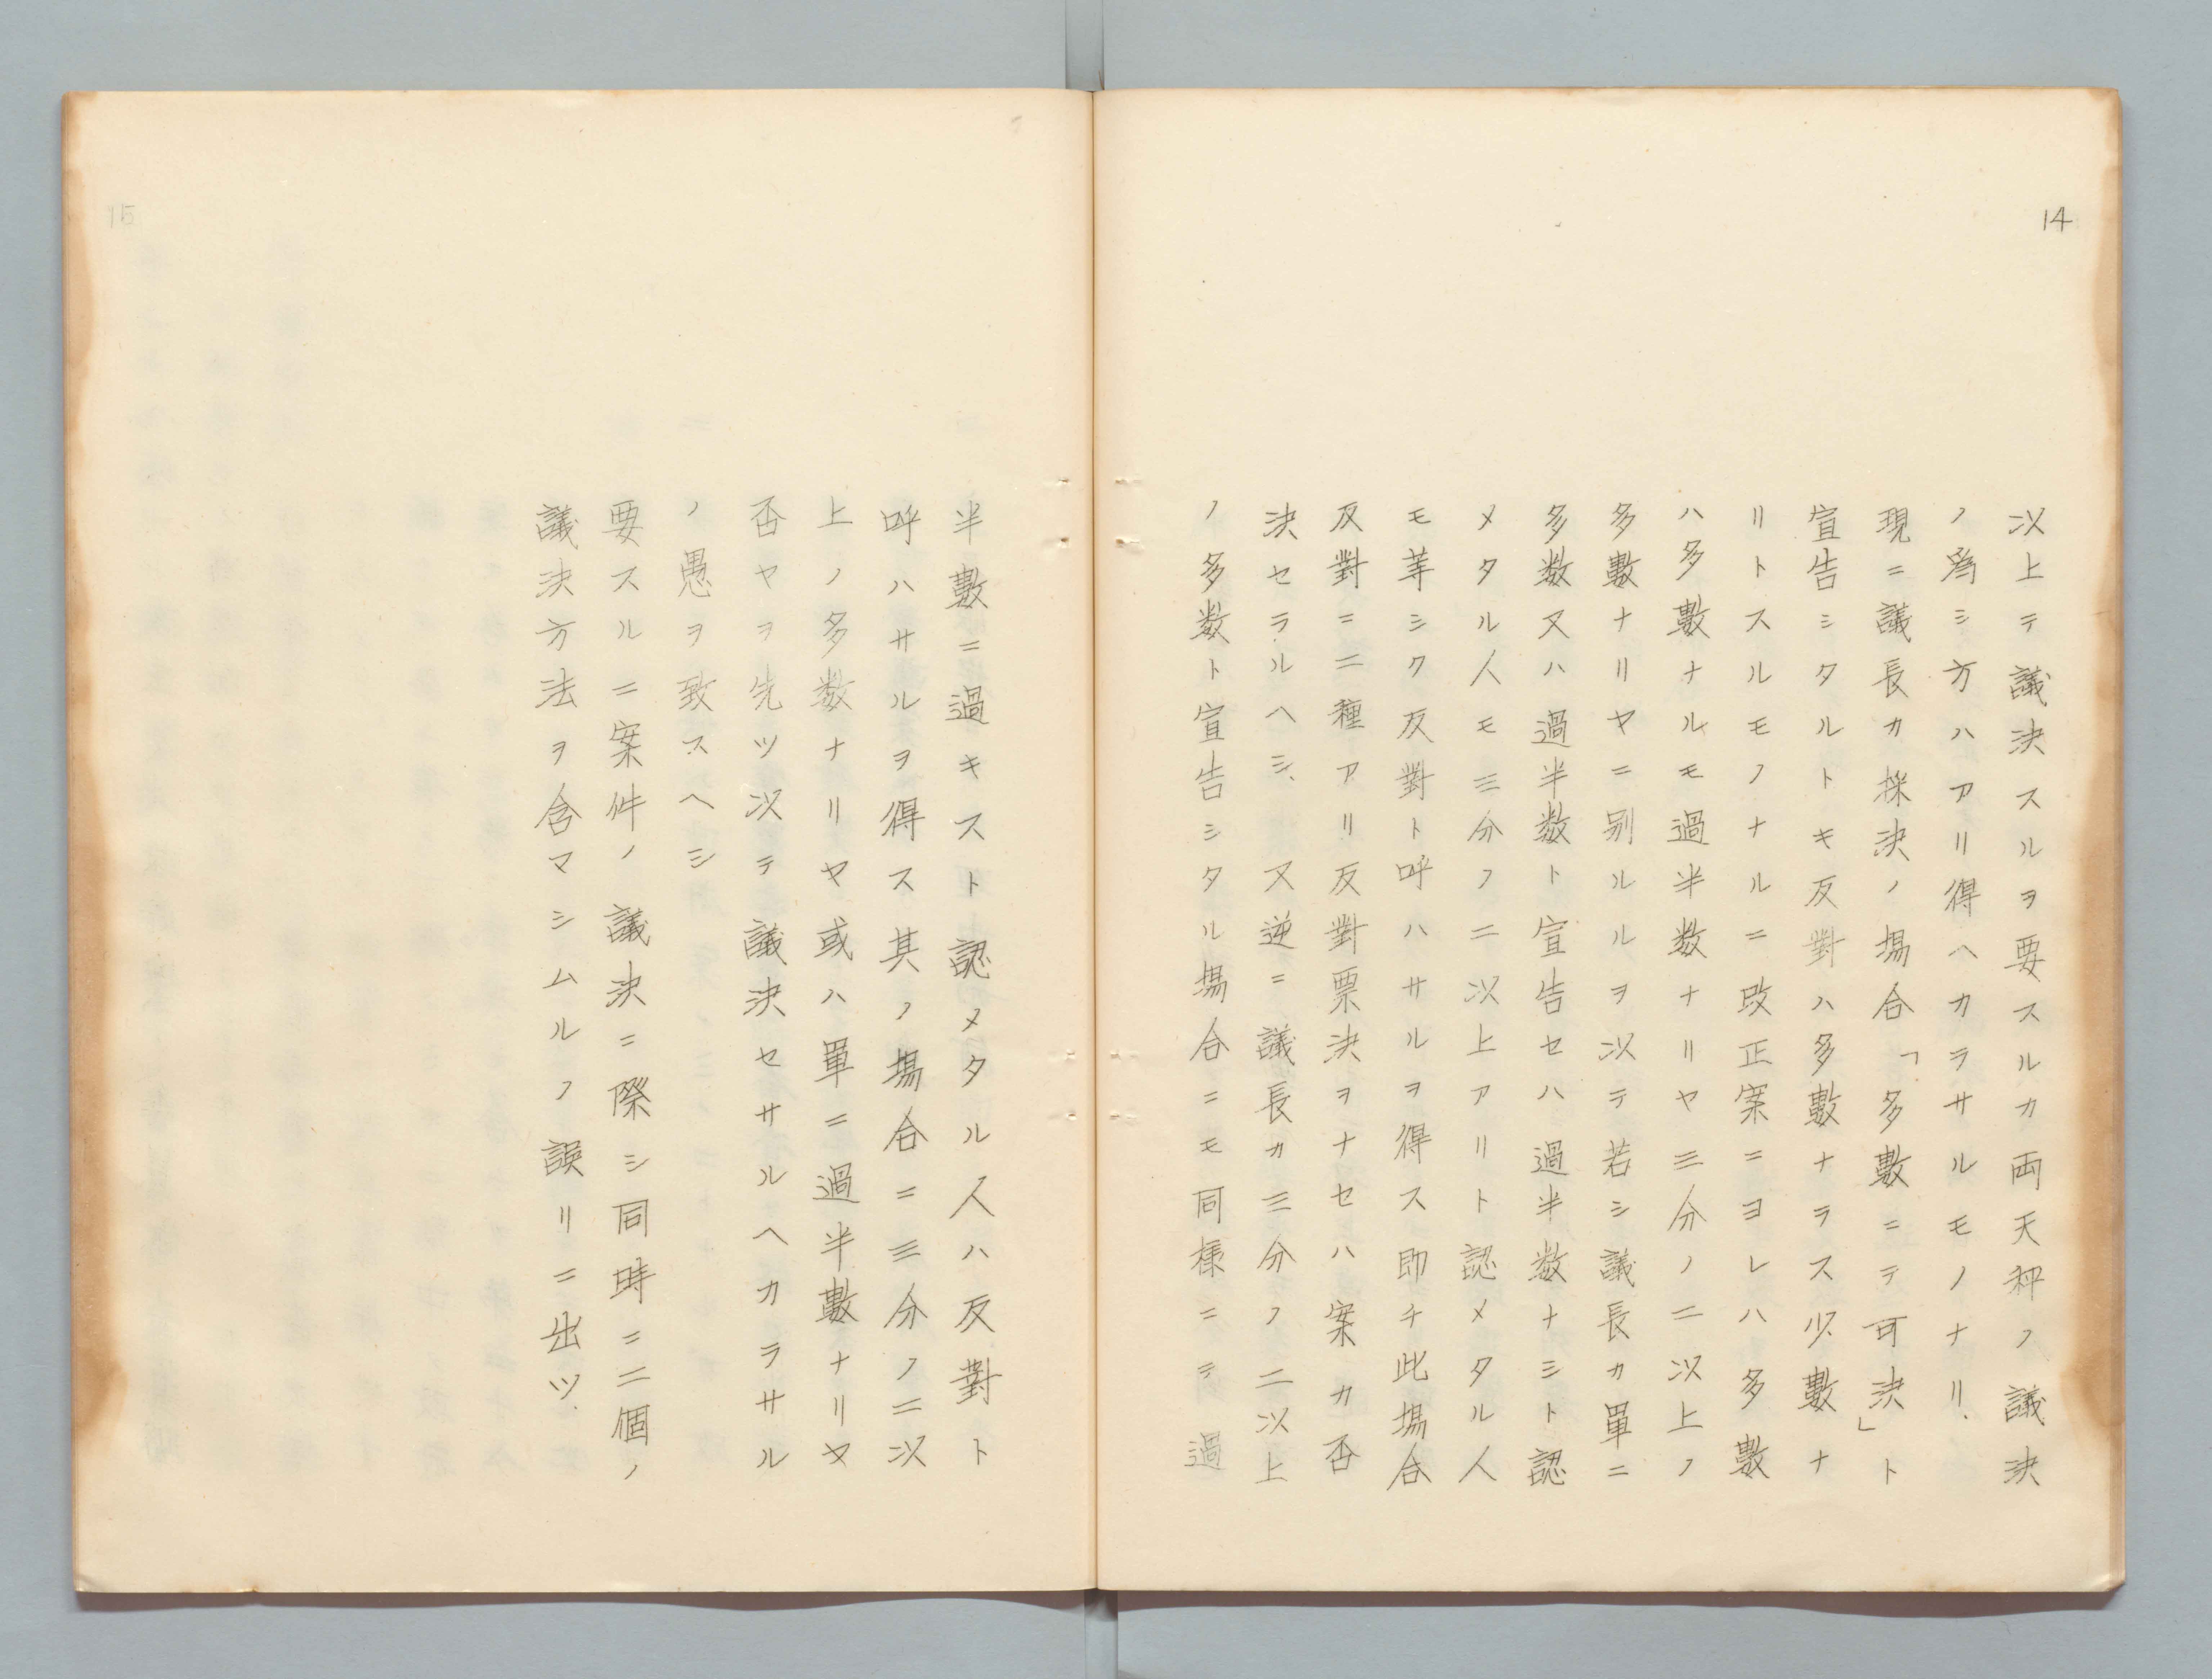 14
以上テ議決スルヲ要スルカ両天秤ノ議決
ノ為シ方ハアリ得ヘカラサルモノナリ、
現ニ議長カ採決ノ場合「多數ニテ可決」ト
宣告シタルトキ反對ハ多數ナラス少數ナ
リトスルモノナルニ改正案ニヨレハ多數
ハ多數ナルモ過半数ナリヤ三分ノ二以上ノ
多數ナリヤニ別ルルヲ以テ若シ議長カ單ニ
多数又ハ過半数ト宣告セハ過半数ナシト認
メタル人モ三分ノ二以上アリト認メタル人
モ等シク反對ト呼ハサルヲ得ス即チ此場合
反對ニ二種アリ反對票決ヲナセハ案カ否
決セラルヘシ、又逆ニ議長カ三分ノ二以上
ノ多数ト宣告シタル場合ニモ同様ニテ過
半數ニ過キスト認メタル人ハ反對ト
呼ハサルヲ得ス其ノ場合ニ三分ノ二以
上ノ多数ナリヤ或ハ單ニ過半數ナリヤ
否ヤヲ先ツ以テ議決セサルヘカラサル
ノ愚ヲ致スヘシ
要スルニ案件ノ議決ニ際シ同時ニ二個ノ
議決方法ヲ含マシムルノ誤リニ出ツ、
15